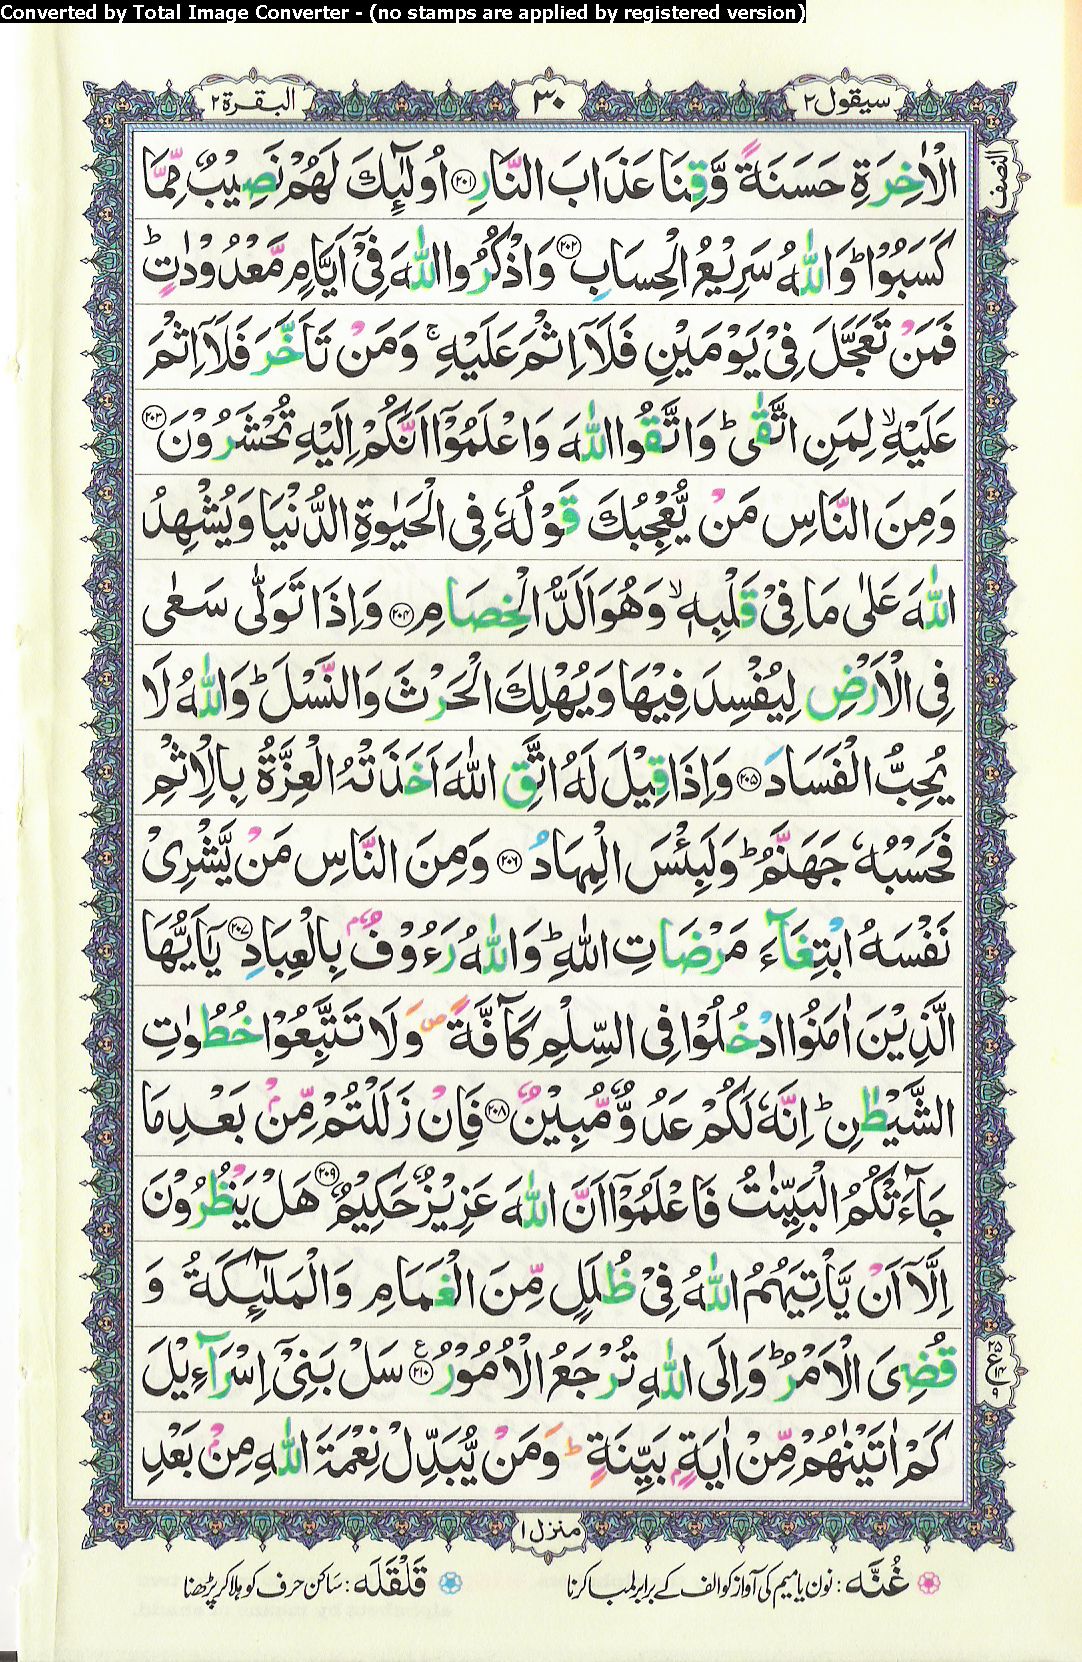 Converted by Total Image Converter - (no stamps are applied by registered version)
سيقول ٢ ٣٠ البقرة ٢
النصف
الْاٰخِرَةِ حَسَنَةً وَّقِنَا عَذَابَ النَّارِ ﴿٢٠١﴾ اُولٰٓئِكَ لَهُمْ نَصِيْبٌ مِّمَّا
كَسَبُوْا ؕ وَاللّٰهُ سَرِيْعُ الْحِسَابِ ﴿٢٠٢﴾ وَاذْكُرُوا اللّٰهَ فِيْٓ اَيَّامٍ مَّعْدُوْدٰتٍ ؕ
فَمَنْ تَعَجَّلَ فِيْ يَوْمَيْنِ فَلَآ اِثْمَ عَلَيْهِ ۚ وَمَنْ تَاَخَّرَ فَلَآ اِثْمَ
عَلَيْهِ ۙ لِمَنِ اتَّقٰى ؕ وَاتَّقُوا اللّٰهَ وَاعْلَمُوْٓا اَنَّكُمْ اِلَيْهِ تُحْشَرُوْنَ ﴿٢٠٣﴾
وَمِنَ النَّاسِ مَنْ يُّعْجِبُكَ قَوْلُهٗ فِى الْحَيٰوةِ الدُّنْيَا وَيُشْهِدُ
اللّٰهَ عَلٰى مَا فِيْ قَلْبِهٖ ۙ وَهُوَ اَلَدُّ الْخِصَامِ ﴿٢٠٤﴾ وَاِذَا تَوَلّٰى سَعٰى
فِى الْاَرْضِ لِيُفْسِدَ فِيْهَا وَيُهْلِكَ الْحَرْثَ وَالنَّسْلَ ؕ وَاللّٰهُ لَا
يُحِبُّ الْفَسَادَ ﴿٢٠٥﴾ وَاِذَا قِيْلَ لَهُ اتَّقِ اللّٰهَ اَخَذَتْهُ الْعِزَّةُ بِالْاِثْمِ
فَحَسْبُهٗ جَهَنَّمُ ؕ وَلَبِئْسَ الْمِهَادُ ﴿٢٠٦﴾ وَمِنَ النَّاسِ مَنْ يَّشْرِيْ
نَفْسَهُ ابْتِغَآءَ مَرْضَاتِ اللّٰهِ ؕ وَاللّٰهُ رَءُوْفٌۢ بِالْعِبَادِ ﴿٢٠٧﴾ يٰٓاَيُّهَا
الَّذِيْنَ اٰمَنُوا ادْخُلُوْا فِى السِّلْمِ كَآفَّةً ۪ وَلَا تَتَّبِعُوْا خُطُوٰتِ
الشَّيْطٰنِ ؕ اِنَّهٗ لَكُمْ عَدُوٌّ مُّبِيْنٌ ﴿٢٠٨﴾ فَاِنْ زَلَلْتُمْ مِّنْۢ بَعْدِ مَا
جَآءَتْكُمُ الْبَيِّنٰتُ فَاعْلَمُوْٓا اَنَّ اللّٰهَ عَزِيْزٌ حَكِيْمٌ ﴿٢٠٩﴾ هَلْ يَنْظُرُوْنَ
اِلَّآ اَنْ يَّاْتِيَهُمُ اللّٰهُ فِيْ ظُلَلٍ مِّنَ الْغَمَامِ وَالْمَلٰٓئِكَةُ وَ
قُضِىَ الْاَمْرُ ؕ وَاِلَى اللّٰهِ تُرْجَعُ الْاُمُوْرُ ﴿٢١٠﴾ ع سَلْ بَنِيْٓ اِسْرَآءِيْلَ
كَمْ اٰتَيْنٰهُمْ مِّنْ اٰيَةٍۭ بَيِّنَةٍ ؕ وَمَنْ يُّبَدِّلْ نِعْمَةَ اللّٰهِ مِنْۢ بَعْدِ
منزل ١
غُنَّه : نون یا میم کی آواز کو الف کے برابر لمبا کرنا قَلْقَلَه : ساکن حرف کو ہلا کر پڑھنا